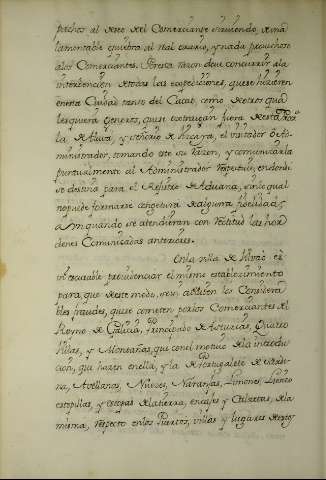 pechos al deseo del Comerciante siguiendo, de una
lamentable quiebra al Real erario, y nada provechoso
a los Comerciantes. Por esta razon deve concurrir a la
intervencion de todas las expediciones, que se hizieren
en esta Ciudad tanto del Cacao, como de otros qua
lesquiera generos, que se extraigan fuera de esta Prov.a
la de Alava, y Señorio de Vizcaya, el visitador o Ad-
ministrador, tomando este su razon, y comunicarla
puntualmente al Administrador respective, en donde
se destina para el Registro de Aduana, sin lo qual
no puede formarse congetura de alguna
aun quando se atendieran con rectitud las hor
denes Comunicadas anteriores.
En la villa de Bilvao es
inescusable providenciar el mismo establecimiento
para, que de este modo, se eviten los considera
bles fraudes, que se cometen por los Comerciantes del
Reyno de Galicia, Principado de Asturias, Quatro
Villas, y Montañas, que con el motivo de la introduc
cion, que hazen en ella, y la de Portugalete de Sardi-
na, Avellanas, Nuezes, Naranjas, Limones, Lienzo
estopillas, y estopas de la tierra, encajes y
misma, respecto en los Puertos, villas y lugares de estos